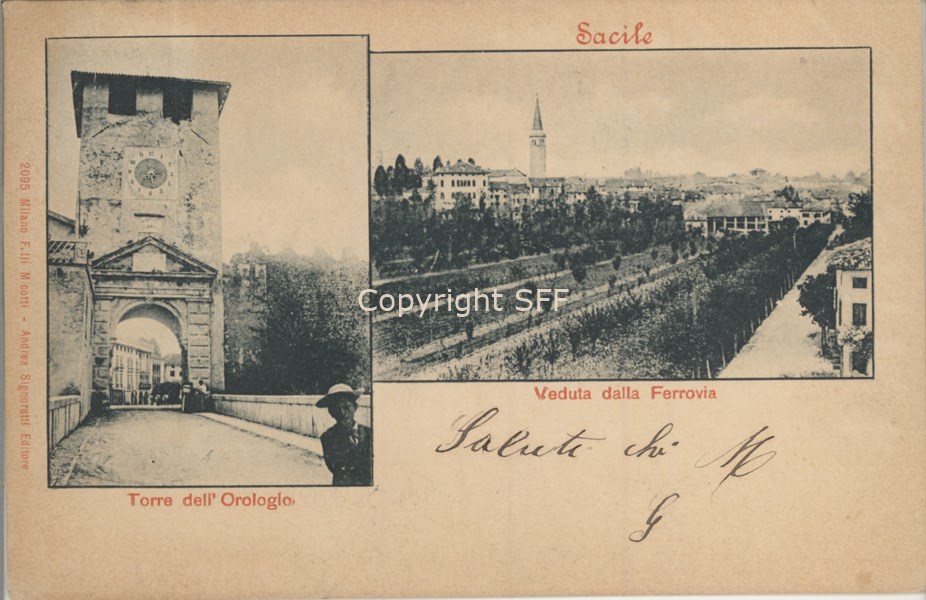 Sacile
Copyright SFF
Veduta dalla Ferrovia
Saluti
M
G
Torre dell' Orologio
2095 Milano F.lli Andrea Signoretti Editore